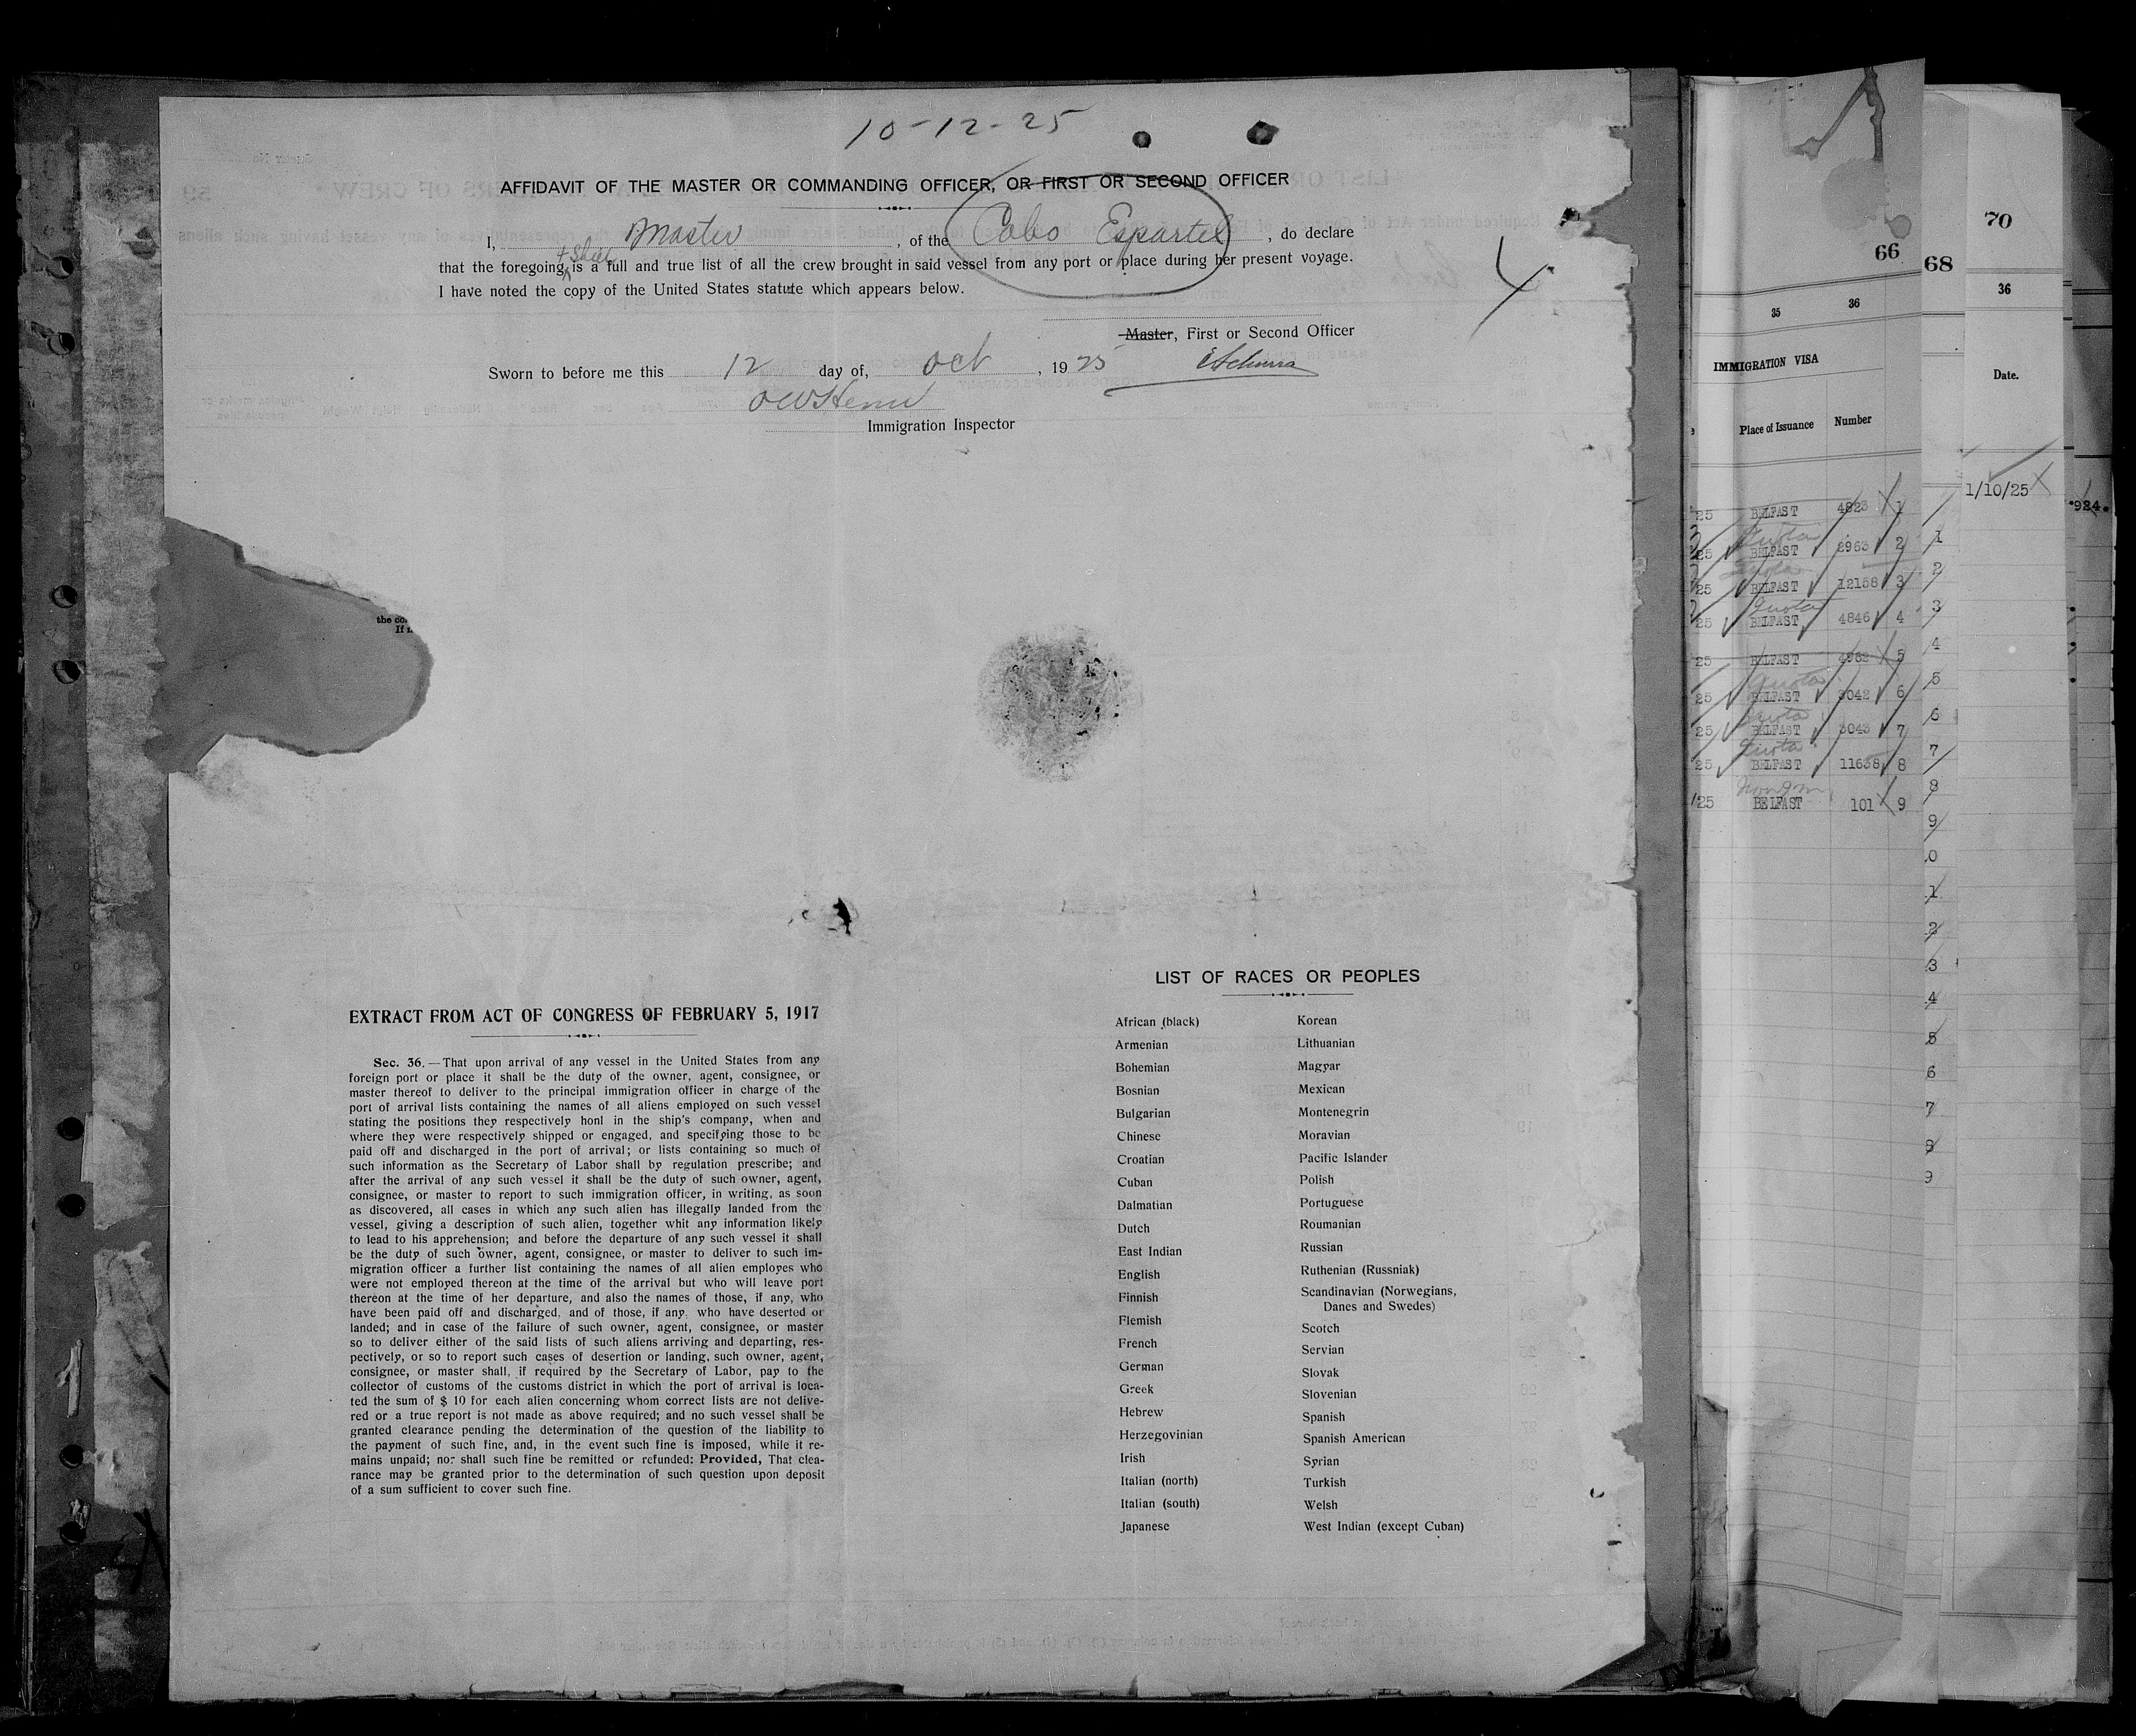 10-12-25
AFFIDAVIT OF THE MASTER OR COMMANDING OFFICER, OR FIRST OR SECOND OFFICER
I, Master, of the Cabo Espartel, do declare
that the foregoing + Sheet is a full and true list of all the crew brought in said vessel from any port or place during her present voyage.
I have noted the copy of the United States statute which appears below.
4
Master, First or Second Officer
Sworn to before me this 12 day of, Oct, 1925
Immigration Inspector
the co
If
EXTRACT FROM ACT OF CONGRESS OF FEBRUARY 5, 1917
Sec. 36.—That upon arrival of any vessel in the United States from any
foreign port or place it shall be the duty of the owner, agent, consignee, or
master thereof to deliver to the principal immigration officer in charge of the
port of arrival lists containing the names of all aliens employed on such vessel
stating the positions they respectively honl in the ship's company, when and
where they were respectively shipped or engaged, and specifying those to be
paid off and discharged in the port of arrival; or lists containing so much of
such information as the Secretary of Labor shall by regulation prescribe; and
after the arrival of any such vessel it shall be the duty of such owner, agent,
consignee, or master to report to such immigration officer, in writing, as soon
as discovered, all cases in which any such alien has illegally landed from the
vessel, giving a description of such alien, together whit any information likely
to lead to his apprehension; and before the departure of any such vessel it shall
be the duty of such owner, agent, consignee, or master to deliver to such im-
migration officer a further list containing the names of all alien employes who
were not employed thereon at the time of the arrival but who will leave port
thereon at the time of her departure, and also the names of those, if any, who
have been paid off and discharged, and of those, if any, who have deserted or
landed; and in case of the failure of such owner, agent, consignee, or master
so to deliver either of the said lists of such aliens arriving and departing, res-
pectively, or so to report such cases of desertion or landing, such owner, agent,
consignee, or master shall, if required by the Secretary of Labor, pay to the
collector of customs of the customs district in which the port of arrival is loca-
ted the sum of $ 10 for each alien concerning whom correct lists are not delive-
red or a true report is not made as above required; and no such vessel shall be
granted clearance pending the determination of the question of the liability to
the payment of such fine, and, in the event such fine is imposed, while it re-
mains unpaid; nor shall such fine be remitted or refunded: Provided, That clea-
rance may be granted prior to the determination of such question upon deposit
of a sum sufficient to cover such fine.
LIST OF RACES OR PEOPLES
African (black)
Armenian
Bohemian
Bosnian
Bulgarian
Chinese
Croatian
Cuban
Dalmatian
Dutch
East Indian
English
Finnish
Flemish
French
German
Greek
Hebrew
Herzegovinian
Irish
Italian (north)
Italian (south)
Japanese
Korean
Lithuanian
Magyar
Mexican
Montenegrin
Moravian
Pacific Islander
Polish
Portuguese
Roumanian
Russian
Ruthenian (Russniak)
Scandinavian (Norwegians,
Danes and Swedes)
Scotch
Servian
Slovak
Slovenian
Spanish
Spanish American
Syrian
Turkish
Welsh
West Indian (except Cuban)
66
35 36
IMMIGRATION VISA
Place of Issuance Number
25 BELFAST 4823 1
Quota
25 BELFAST 2963 2
25 BELFAST 12158 3
Quota
25 BELFAST 4846 4
25 BELFAST 5
Quota
25 BELFAST 3042 6
Quota
25 BELFAST 3043 7
Quota
25 BELFAST 11638 8
/25 BELFAST 101 9
68
1
2
3
4
5
6
7
8
9
0
1
2
3
4
5
6
7
8
9
70
36
Date.
1/10/25
924